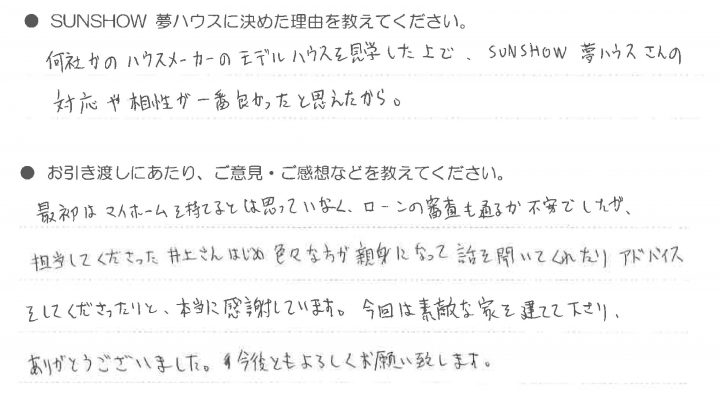 ● SUNSHOW 夢ハウスに決めた理由を教えてください。
何社かのハウスメーカーのモデルハウスを見学した上で、SUNSHOW 夢ハウスさんの
対応や相性が一番良かったと思えたから。
● お引き渡しにあたり、ご意見・ご感想などを教えてください。
最初はマイホームを持てるとは思っていなく、ローンの審査も通るか不安でしたが、
担当してくださった井上さんはじめ色々な方が親身になって話を聞いてくれたりアドバイス
をしてくださったりと、本当に感謝しています。今回は素敵な家を建てて下さり、
ありがとうございました。今後ともよろしくお願い致します。